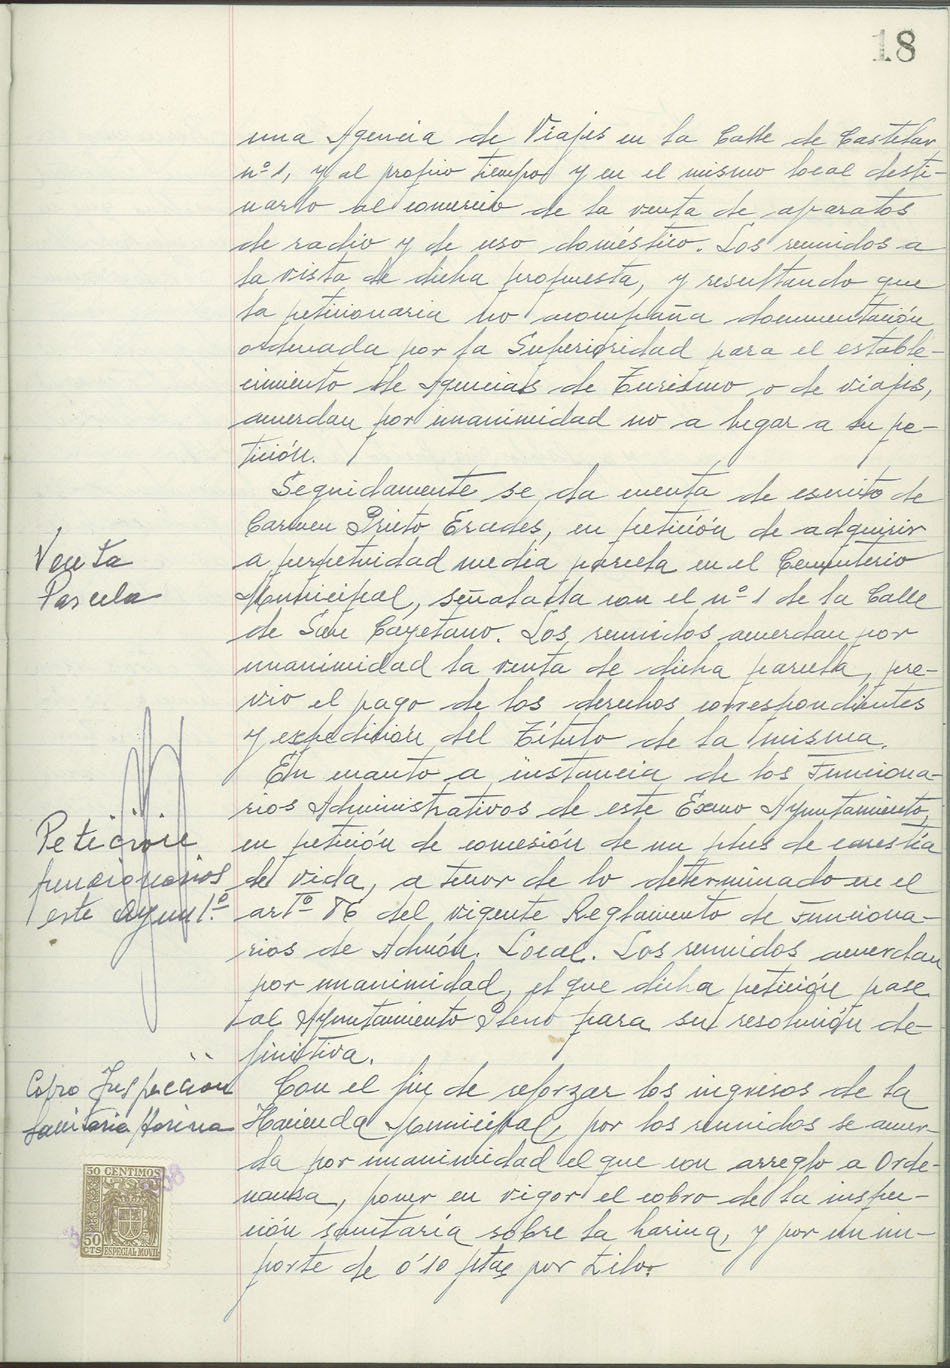 18
una Agencia de Viajes en la Calle de Castelar
nº 1, y al propio tiempo y en el mismo local desti-
narlo al comercio de la venta de aparatos
de radio y de uso doméstico. Los reunidos a
la vista de dicha propuesta, y resultando que
la peticionaria no acompaña documentación
ordenada por la Superioridad para el estable-
cimiento de Agencias de Turismo o de viajes,
acuerdan por unanimidad no a lugar a su pe-
tición.
Seguidamente se da cuenta de escrito de
Carmen Prieto Erades, en petición de adquirir
Venta
Parcela
a perpetuidad media parcela en el Cementerio
Municipal, señalada con el nº 1 de la Calle
de San Cayetano. Los reunidos acuerdan por
unanimidad la venta de dicha parcela, pre-
vio el pago de los derechos correspondientes
y expedición del Título de la misma.
En cuanto a instancia de los Funciona-
rios Administrativos de este Excmo Ayuntamiento,
Petición
funcionarios
este Ayunt.º
en petición de concesión de un plus de carestía
de vida, a tenor de lo determinado en el
artº 86 del vigente Reglamento de Funciona-
rios de Admón. Local. Los reunidos acuerdan
por unanimidad, el que dicha petición pase
al Ayuntamiento Pleno para su resolución de-
finitiva.
Cobro Inspección
Sanitaria Harina
Con el fin de reforzar los ingresos de la
Hacienda Municipal, por los reunidos se acuer-
da por unanimidad el que con arreglo a Orde-
nanza, poner en vigor el cobro de la inspec-
ción sanitaria sobre la harina, y por un im-
porte de 0'10 ptas por kilo.
50 CENTIMOS
50
CTS
ESPECIAL MOVIL